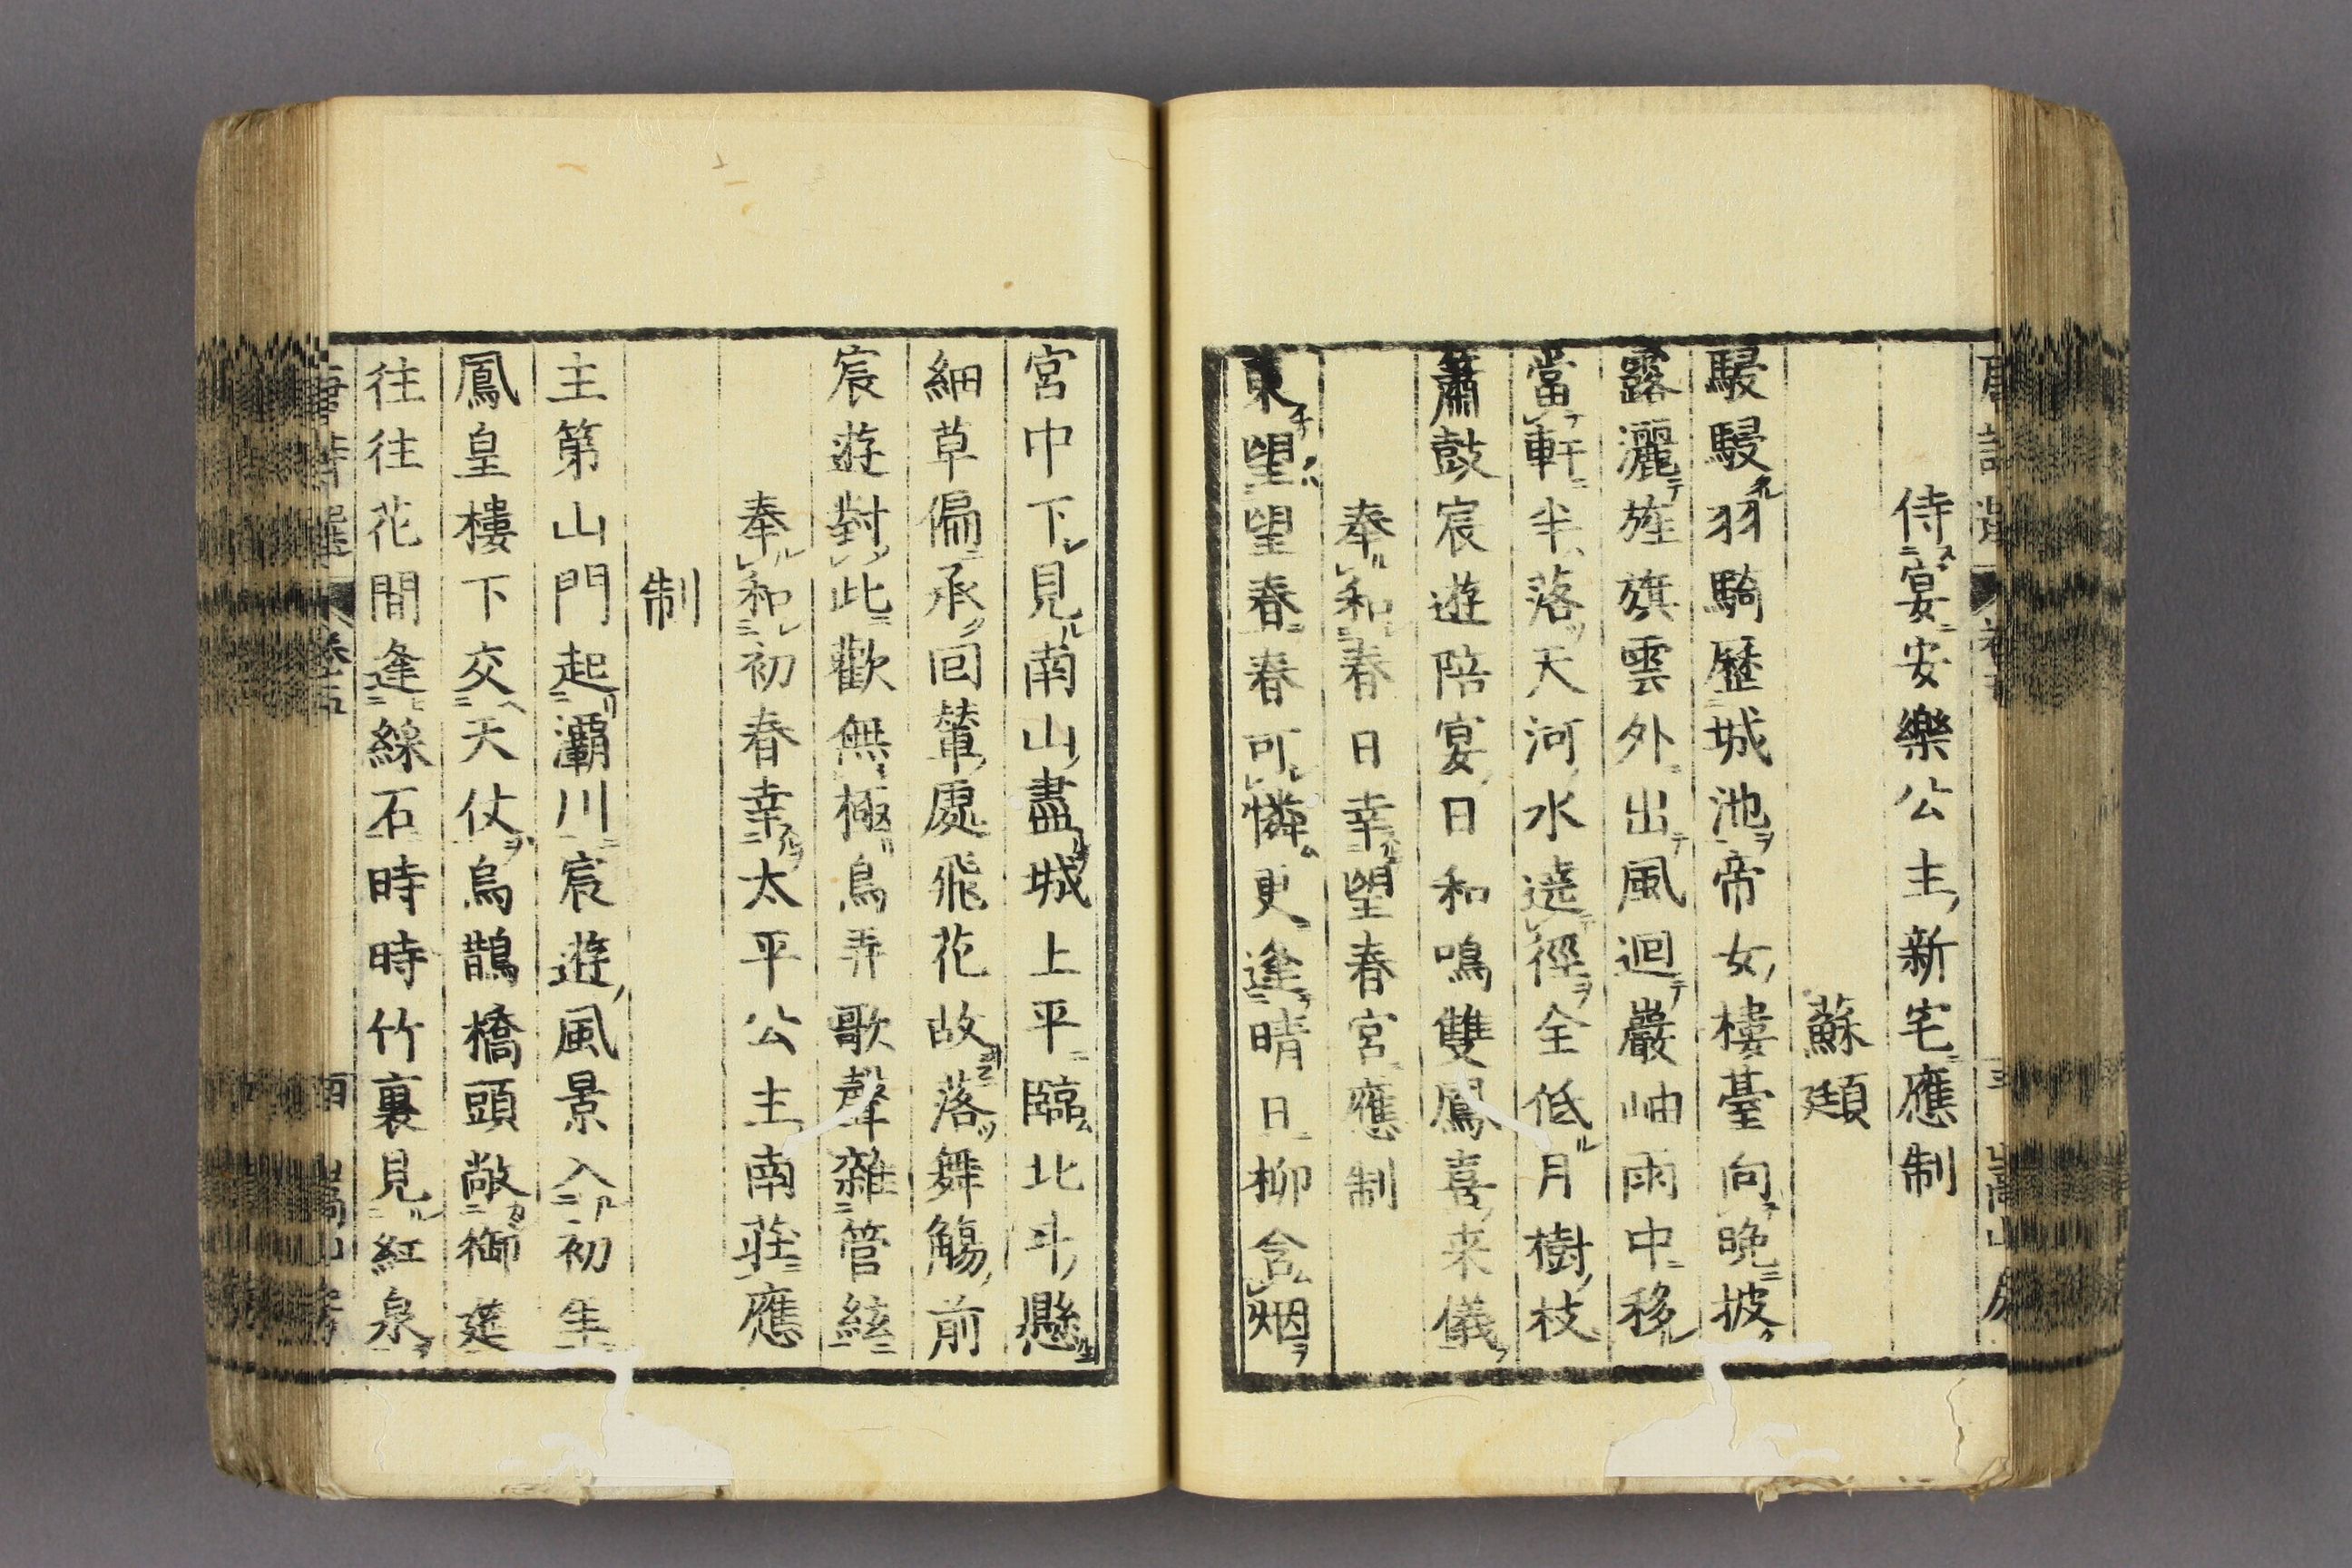 侍宴安樂公主新宅應制
蘇頲
駸駸羽騎歷城池帝女樓臺向晚披
露灑旌旗雲外出風迴巖岫雨中移
當軒半落天河水遶徑全低月樹枝
簫鼓宸遊陪宴日和鳴雙鳳喜来儀
奉和春日幸望春宮應制
東望望春春可憐更逢晴日柳含烟
宮中下見南山盡城上平臨北斗懸
細草偏承回輦處飛花故落舞觴前
宸遊對此歡無極鳥弄歌聲雜管絃
奉和初春幸太平公主南莊應
制
主第山門起灞川宸遊風景入初年
鳳皇樓下交天仗烏鵲橋頭敞御筵
往往花間逢綵石時時竹裏見紅泉